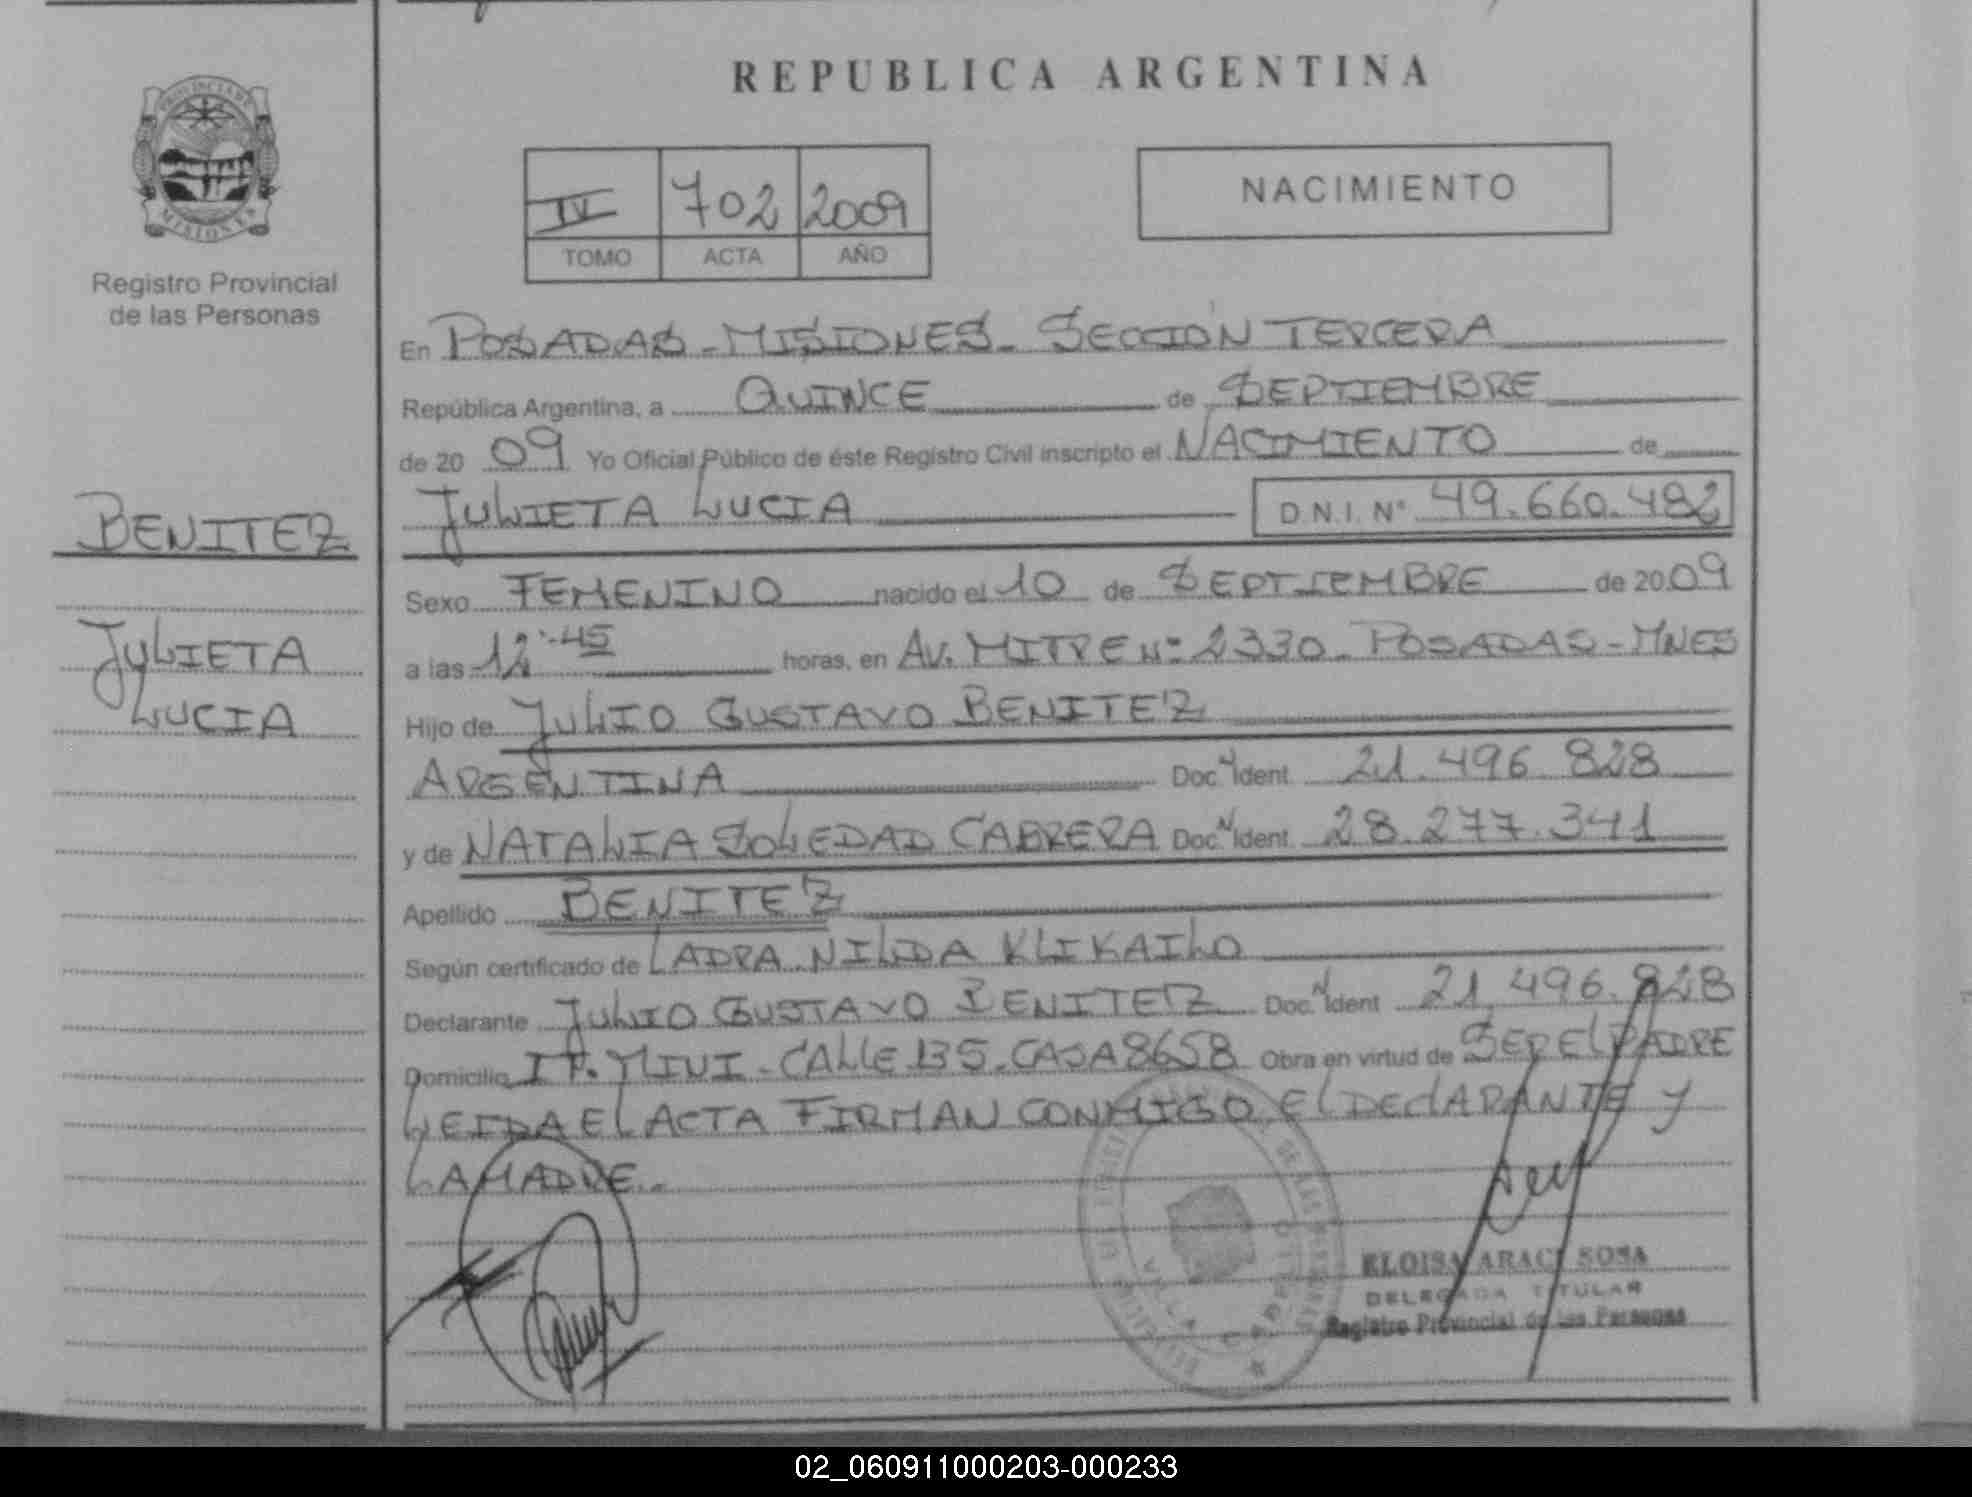 REPUBLICA ARGENTINA
PROVINCIA DE
MISIONES
Registro Provincial
de las Personas
IV 702 2009
TOMO ACTA AÑO
NACIMIENTO
En POSADAS - MISIONES - SECCIÓN TERCERA
República Argentina, a QUINCE de SEPTIEMBRE
de 20 09 Yo Oficial Público de éste Registro Civil inscripto el NACIMIENTO de
BENITEZ
JULIETA LUCIA D.N.I. N° 49.660.482
Sexo FEMENINO nacido el 10 de SEPTIEMBRE de 2009
JULIETA
LUCIA
a las 12:45 horas, en AV. MITRE N° 2330 - POSADAS - MNES
Hijo de JULIO GUSTAVO BENITEZ
ARGENTINA Doc. N Ident. 21.496.828
y de NATALIA SOLEDAD CABRERA Doc. N Ident. 28.277.341
Apellido BENITEZ
Según certificado de LADRA NILDA KLIKAILO
Declarante JULIO GUSTAVO BENITEZ Doc. N Ident 21.496.828
Domicilio IT. MINI - CALLE 135 - CASA 8658 Obra en virtud de SER EL PADRE
LEIDA EL ACTA FIRMAN CONMIGO EL DECLARANTE Y
LA MADRE.-
ELOISA ARACI SOSA
DELEGADA TITULAR
Registro Provincial de las Personas
02_060911000203-000233